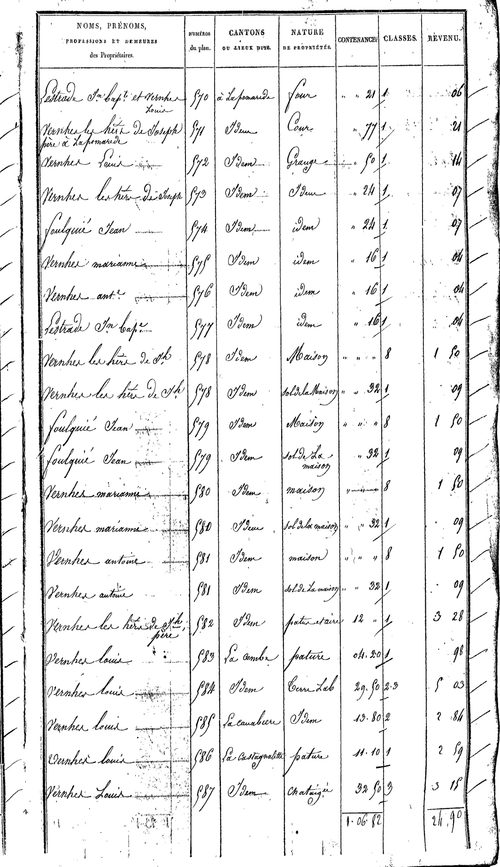 NOMS, PRÉNOMS, PROFESSIONS ET DEMEURES des Propriétaires. NUMÉROS du plan. CANTONS OU LIEUX DITS. NATURE DE PROPRIÉTÉ. CONTENANCE. CLASSES. REVENU.
Lestrade Jn Bapte et Vernhes Louis 570 à Lapomarède four " 21 1 06
Vernhes les hérs de Joseph père à Lapomarede 571 Idem Cour " 77 1 21
Vernhes Louis 572 Idem Grange " 50 1 14
Vernhes les hérs de Joseph 573 Idem Idem " 24 1 07
foulquié Jean 574 Idem idem " 24 1 07
Vernhes marianne 575 Idem idem " 16 1 04
Vernhes ante 576 Idem idem " 16 1 04
Lestrade Jn Bapte 577 Idem idem " 16 1 04
Vernhes les hérs de Jh 578 Idem Maison " " " 8 1 50
Vernhes les hérs de Jh 578 Idem sol de la Maison " " 32 1 09
foulquié Jean 579 Idem Maison " " " 8 1 50
foulquié Jean 579 Idem sol de La maison " 32 1 09
Vernhes marianne 580 Idem maison 8 1 50
Vernhes marianne 580 Idem sol de la maison " " 32 1 09
Vernhes antoine 581 Idem maison " " " 8 1 50
Vernhes antoine 581 Idem sol de La maison " " 32 1 09
Vernhes les hérs de Jh père 582 Idem patus et aire 12 " 1 3 28
Vernhes louis 583 La combe pature 04.20 1 98
Vernhes louis 584 Idem Terre Lab 29.50 2.3 5 03
Vernhes louis 585 La Idem 13.80 2 2 84
Vernhes louis 586 La pature 11.10 1 2 59
Vernhes Louis 587 Idem 32 50 3 3 15
1.06.82 24.90